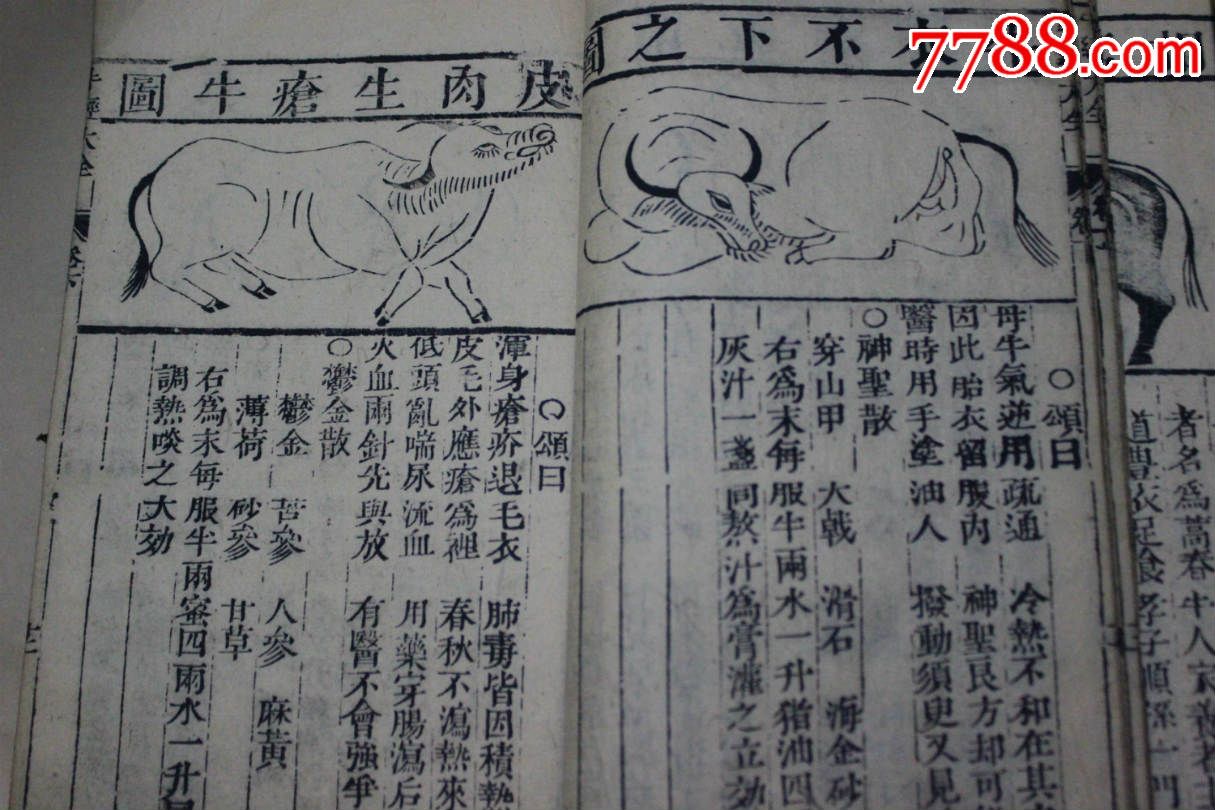 7788.com
衣不下之圖
○頌曰
母牛氣逆用疏通 冷熱不和在其
因此胎衣留腹內 神聖良方却可
醫時用手塗油人 撥動須臾又見
○神聖散
穿山甲 大戟 滑石 海金砂
右爲末每服半兩水一升猪油四
灰汁一盞同熬汁爲膏灌之立効
皮肉生瘡牛圖
○頌曰
渾身瘡疥退毛衣 肺毒皆因積熱
皮毛外應瘡爲裡 春秋不瀉熱來
低頭亂喘尿流血 用藥穿腸瀉后
火血兩針先與放 有醫不會強爭
○鬱金散
鬱金 苦參 人參 麻黃
薄荷 砂參 甘草
右爲末每服半兩蜜四兩水一升
調熱啖之大効
大全
者名爲蒿春牛人
道豊衣足食孝子順孫一門